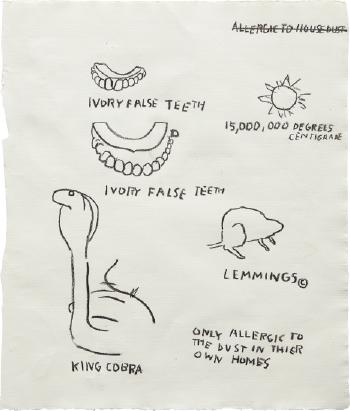 ALLERGIC TO HOUSE DUST
IVORY FALSE TEETH
15,000,000 DEGREES
CENTIGRADE
IVORY FALSE TEETH
LEMMINGS©
ONLY ALLERGIC TO
THE DUST IN THIER
OWN HOMES
KING COBRA